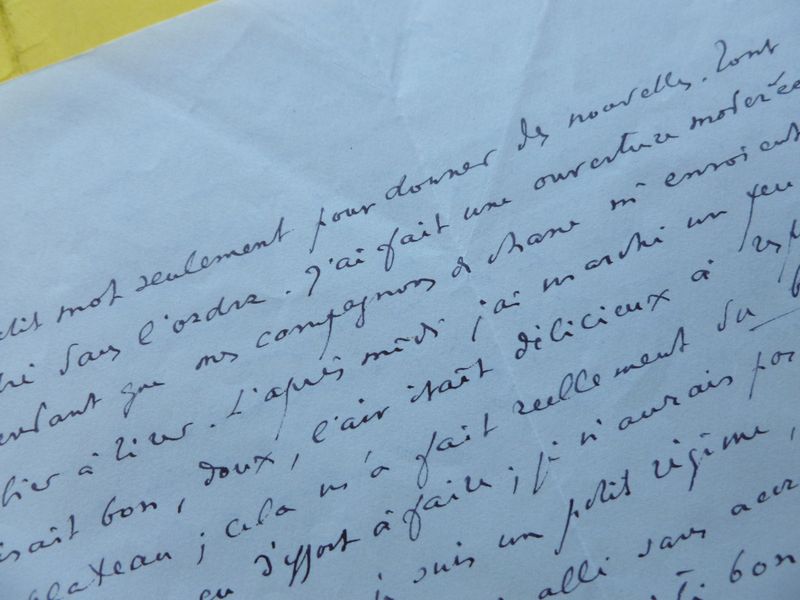 petit mot seulement pour donner des nouvelles. Tout
dans l'ordre. J'ai fait une ouverture modérée
pendant que mes compagnons de chasse m'envoient
à tirer. L'après midi j'ai marché un peu
faisait bon, doux, l'air était délicieux à
plateau ; cela m'a fait réellement du
d'effort à faire ; je n'aurais pas
je suis un petit régime,
allé sans
bon